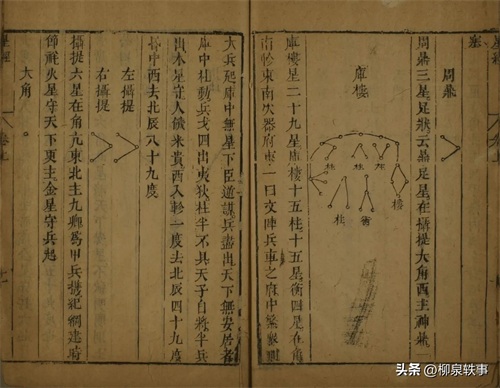 周鼎
周鼎三星足狀云鼎足星在攝提大角西主神鼎
庫樓
柱
柱
柱
樓
柱
衡
庫樓星二十九星庫樓十五柱十五星衡四星在角
南軫東南次器府東一曰文陣兵車之府中星衆則
大兵起庫中無星下臣逆謀兵盡出天下無安居者
庫中柱動兵戈四出夷狄柱半不具天子自將半兵
出木星守人饑米貴西入軫一度去北辰四十九度
中西去北辰八十九度
左攝提
右攝提
攝提六星在角亢東北主九卿爲甲兵攜犯獨建時
節火星守天下更主金星守兵起
大角
頭条 @柳泉轶事